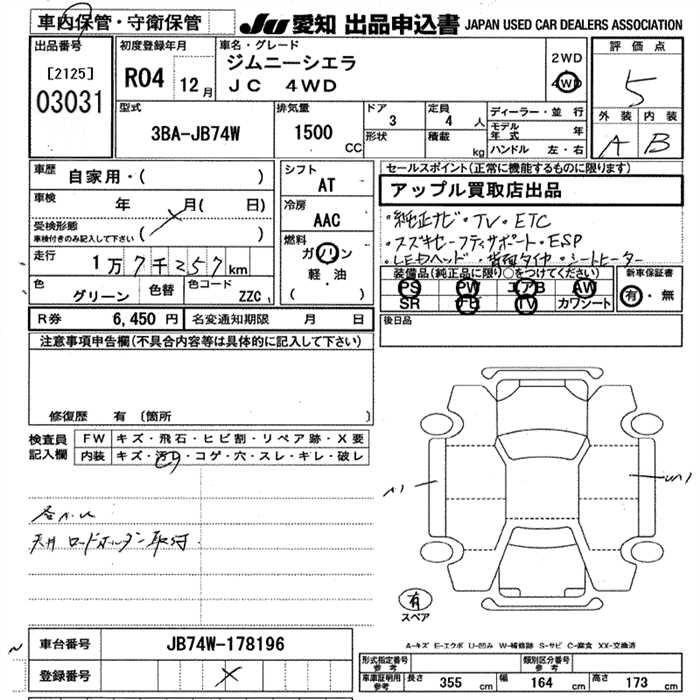 車内保管・守衛保管
JU 愛知 出品申込書 JAPAN USED CAR DEALERS ASSOCIATION
出品番号
[2125]
03031
初度登録年月
R04 12月
車名・グレード
ジムニーシエラ
JC 4WD
2WD
4WD
評価点
5
外装 内装
A B
型式
3BA-JB74W
排気量
1500 CC
ドア
3
形状
定員
4 人
積載
kg
ディーラー・並行
モデル年式 年
ハンドル 左・右
車歴
自家用・( )
車検 年 月(日)
受検形態
車検付きのみ記入して下さい ( )
走行
1万7千257km
色
グリーン
色替
色コード
ZZC
シフト
AT
冷房
AAC
燃料
ガソリン
軽・油
( )
セールスポイント(正常に機能するものに限り)
アップル買取店出品
・純正ナビ・TV・ETC
・スズキセーフティサポート・ESP
・LEDヘッド・背面タイヤ・シートヒーター
装備品(純正品に限り○をつけてください)
PS PW エアB AW
SR ナビ TV カワシート
新車保証書
有・無
後日品
R券 6,450円 名変通知期限 月 日
注意事項申告欄(不具合内容等は具体的に記入して下さい)
修復歴 有 (箇所 )
検査員記入欄
FW キズ・飛石・ヒビ割・リペア跡・X要
内装 キズ・汚レ・コゲ・穴・スレ・キレ・破レ
天井 ロードホルダー取付
有
スペア
車台番号 JB74W-178196
登録番号
A-キズ E-エクボ U-凹み W-補修跡 S-サビ C-腐食 XX-交換済
形式指定番号 参考
類別区分番号 参考
車庫証明用 参考 長さ 355 cm 幅 164 cm 高さ 173 cm